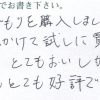 でお書き下さい。
もりを購入しまし
かけて試しに買
とてもおいしか
とても好評で